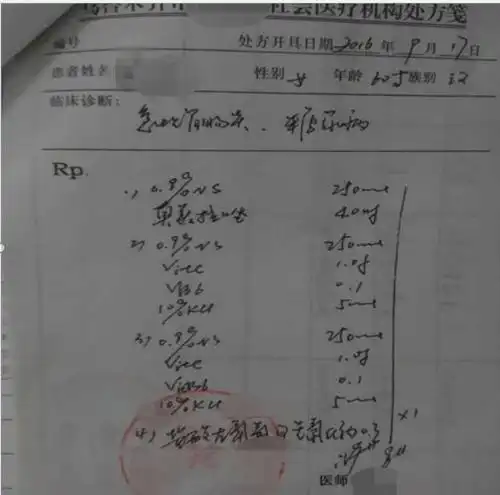 社会医疗机构处方笺
编号 处方开具日期 2016 年 9 月 17 日
患者姓名 性别 女 年龄 60岁 族别 汉
临床诊断：
急性胃肠炎、 糖尿病
Rp.
1) 0.9%NS 250ml
奥美拉唑 40mg
2) 0.9%NS 250ml
Vitc 1.0g
VB6 0.1
10%KCl 5ml
3) 0.9%NS 250ml
Vitc 1.0g
VitB6 0.1
10%KCl 5ml
×1
4) 盐酸左氧氟 0.3
医师